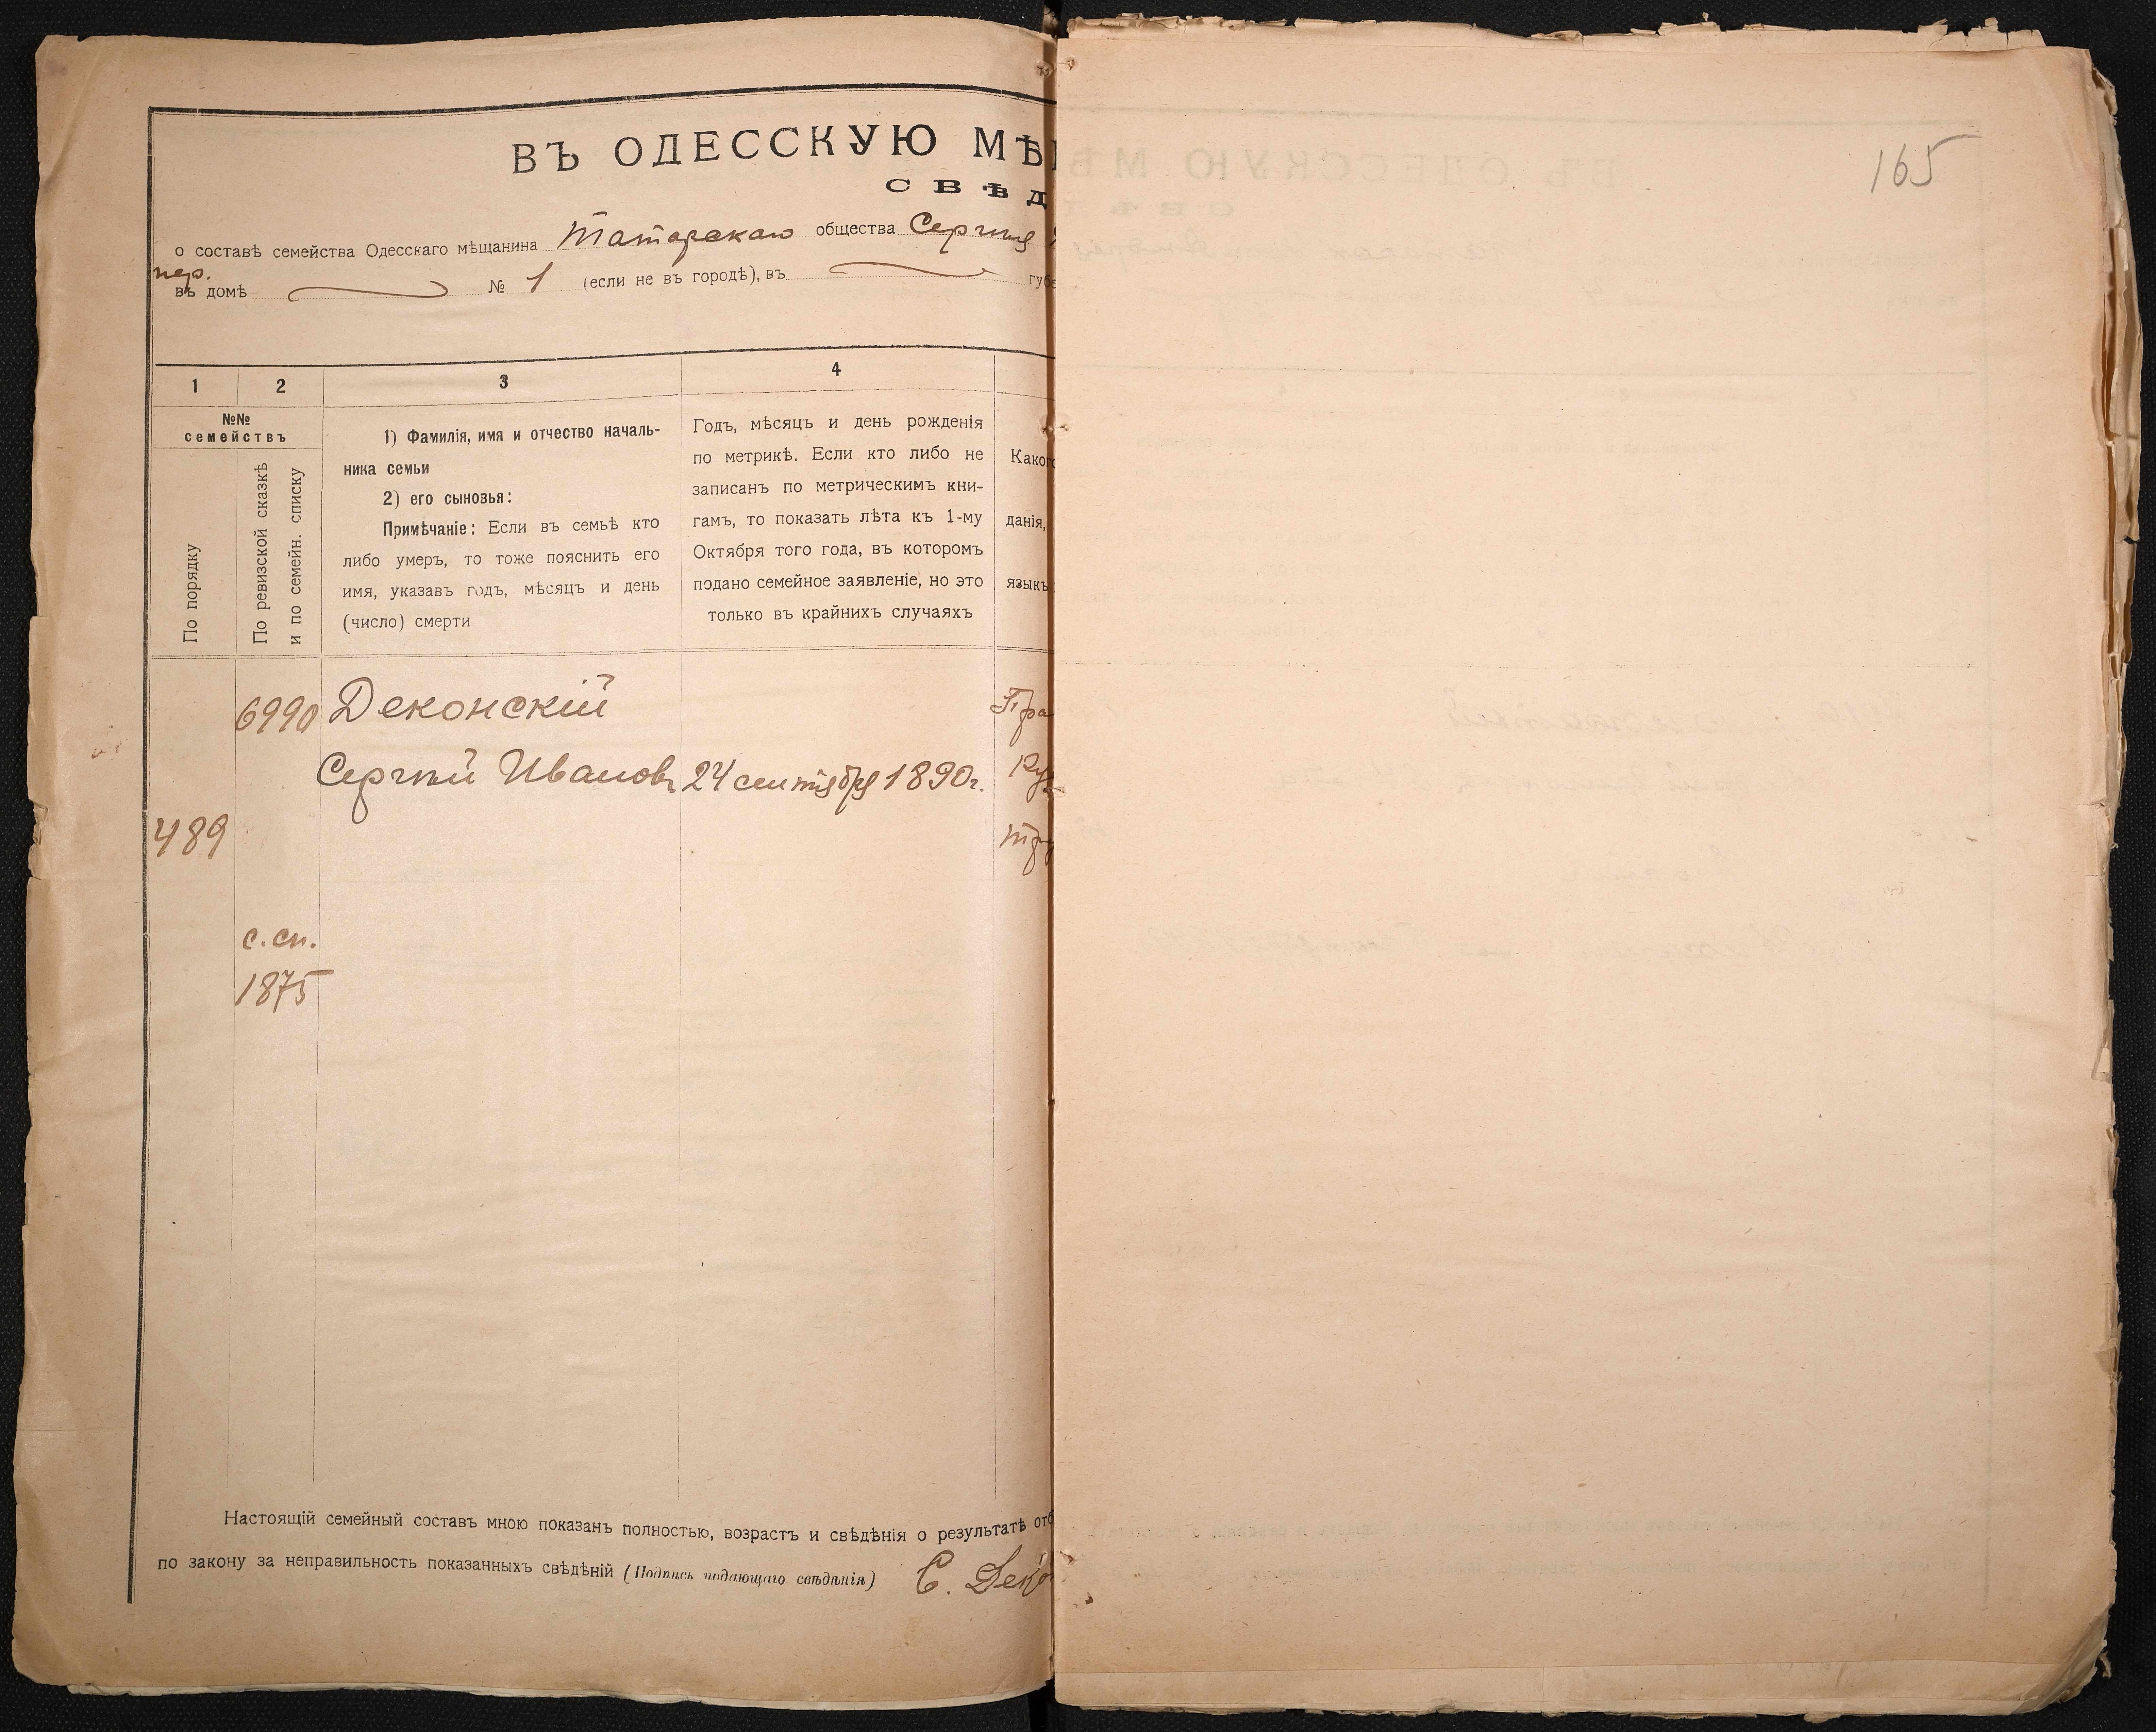 ВЪ ОДЕССКУЮ МѢ
СВѢД
о составѣ семейства Одесскаго мѣщанина Татарскаго общества Сергия
пер.
въ домѣ № 1 (если не въ городѣ), въ губе
1 2 3 4
№№
семействъ
По порядку
По ревизской сказкѣ
и по семейн. списку
1) Фамилія, имя и отчество началь-
ника семьи
2) его сыновья:
Примѣчаніе: Если въ семьѣ кто
либо умеръ, то тоже пояснить его
имя, указавъ годъ, мѣсяцъ и день
(число) смерти
Годъ, мѣсяцъ и день рожденія
по метрикѣ. Если кто либо не
записанъ по метрическимъ кни-
гамъ, то показать лѣта къ 1-му
Октября того года, въ которомъ
подано семейное заявленіе, но это
только въ крайнихъ случаяхъ
Каког
данія,
языкъ
6990 Деконскій Пра
Сергѣй Ивановъ 24 сентября 1890г. Ру
489
с. сп.
1875
Настоящій семейный составъ мною показанъ полностью, возрастъ и свѣдѣнія о результатѣ отб
по закону за неправильность показанныхъ свѣдѣній (Подпись подающаго свѣдѣнія) С. Деко
165